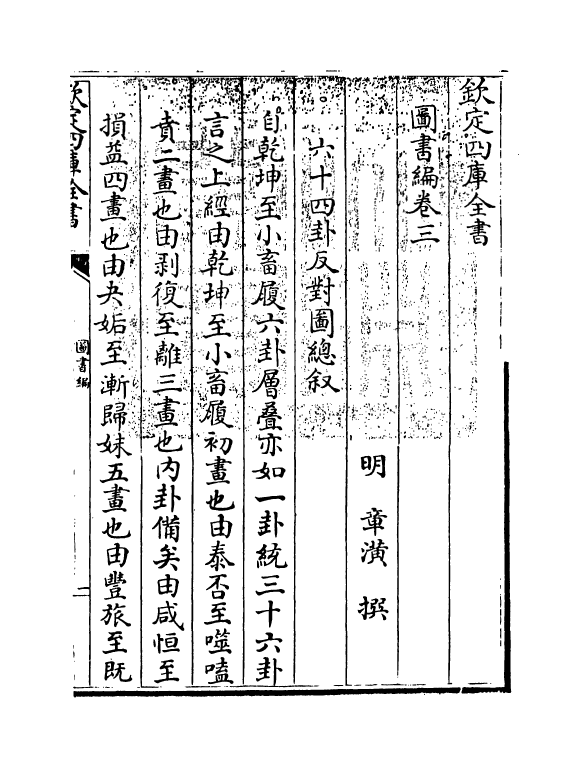 欽定四庫全書
圖書編卷三
明 章潢 撰
六十四卦反對圖總叙
自乾坤至小畜履六卦層疊亦如一卦統三十六卦
言之上經由乾坤至小畜履初畫也由泰否至噬嗑
賁二畫也由剥復至離三畫也内卦備矣由咸恒至
損益四畫也由夬姤至漸歸妹五畫也由豐旅至既
欽定四庫全書
圖書編